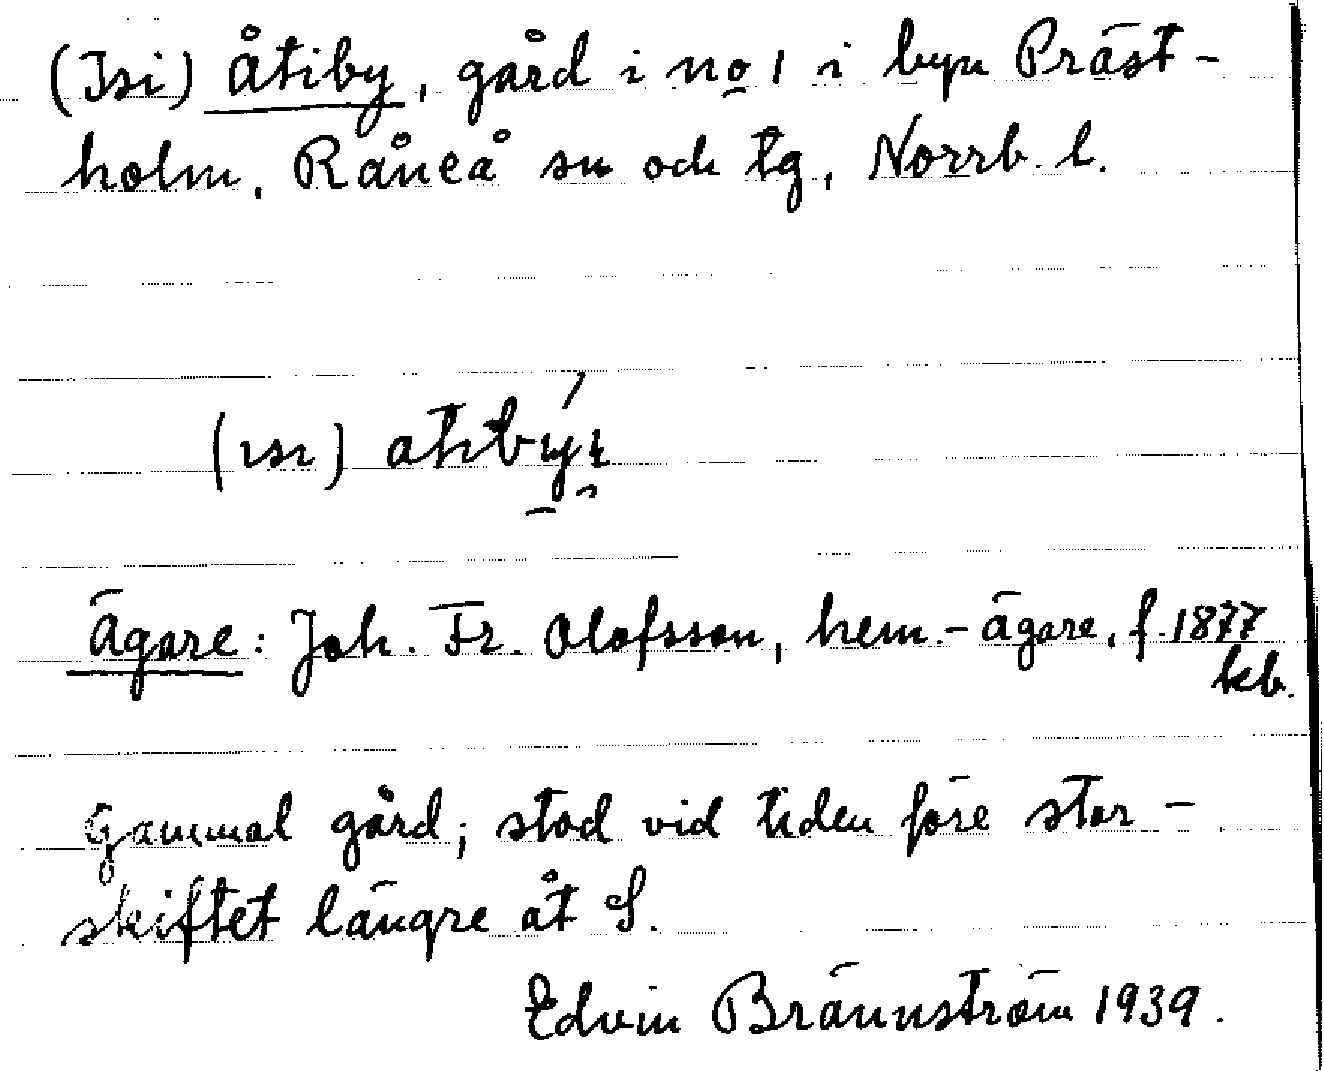 (Isi) Åtiby, gård i no 1 i byn Präst-
holm, Råneå sn och tg, Norrb. l.
(ısı)
Ägare: Joh. Fr. Olofsson, hem.-ägare, f. 1877
kb.
Gammal gård; stod vid tiden före stor-
skiftet längre åt S.
Edvin Brännström 1939.